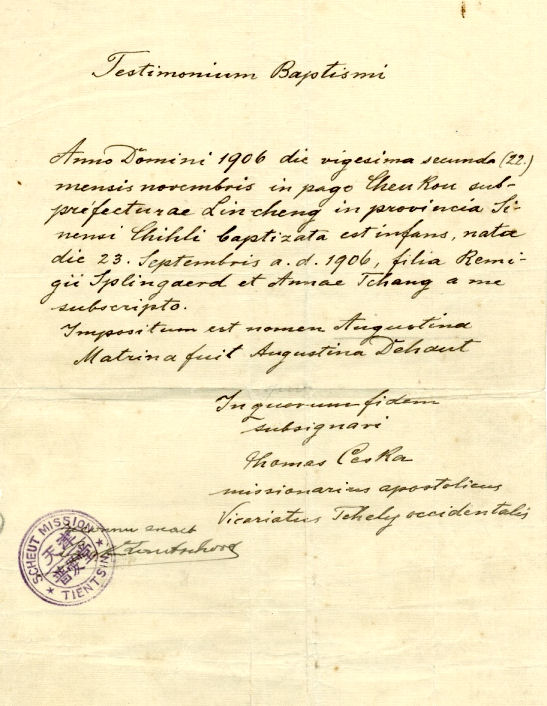 Testimonium Baptismi
Anno Domini 1906 die vigesima secunda (22.)
mensis novembris in pago Cheu Kou sub-
préfecturae Lincheng in provincia Si-
nensi Chihli baptizata est infans, nata
die 23. Septembris a. d. 1906, filia Remi-
gii Splingaerd et Annae Tchang a me
subscripto.
Impositum est nomen Augustina
Matrina fuit Augustina Dehaut
In quorum fidem
subsignari
Thomas Ceska
missionarius apostolicus
Vicariatus Tchely occidentalis
exact
SCHEUT MISSION
TIENTSIN